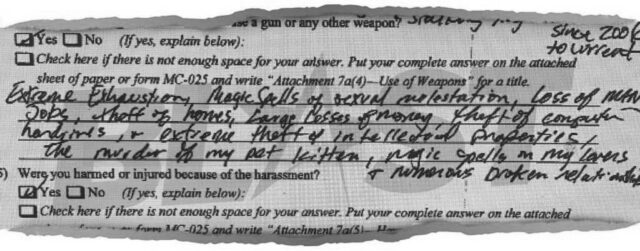 use a gun or any other weapon?
since 200
☑ Yes ☐ No (If yes, explain below):
to current
☐ Check here if there is not enough space for your answer. Put your complete answer on the attached
sheet of paper or form MC-025 and write "Attachment 7a(4)—Use of Weapons" for a title.
Extreme Exhaustion, Magic Spells of sexual molestation, Loss of
Jobs, theft of homes, Large Losses of money theft of computer
hardrives, & extreme theft of intellectual properties,
the murder of my pet kitten, magic spells on my lovers
5) Were you harmed or injured because of the harassment? & numerous broken relationships
☑ Yes ☐ No (If yes, explain below):
☐ Check here if there is not enough space for your answer. Put your complete answer on the attached
form MC-025 and write "Attachment 7a(5)—